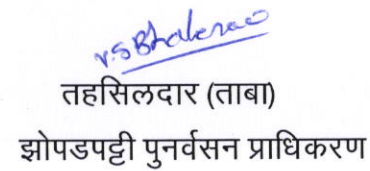 v.s Bhalerao
तहसिलदार (ताबा)
झोपडपट्टी पुनर्वसन प्राधिकरण